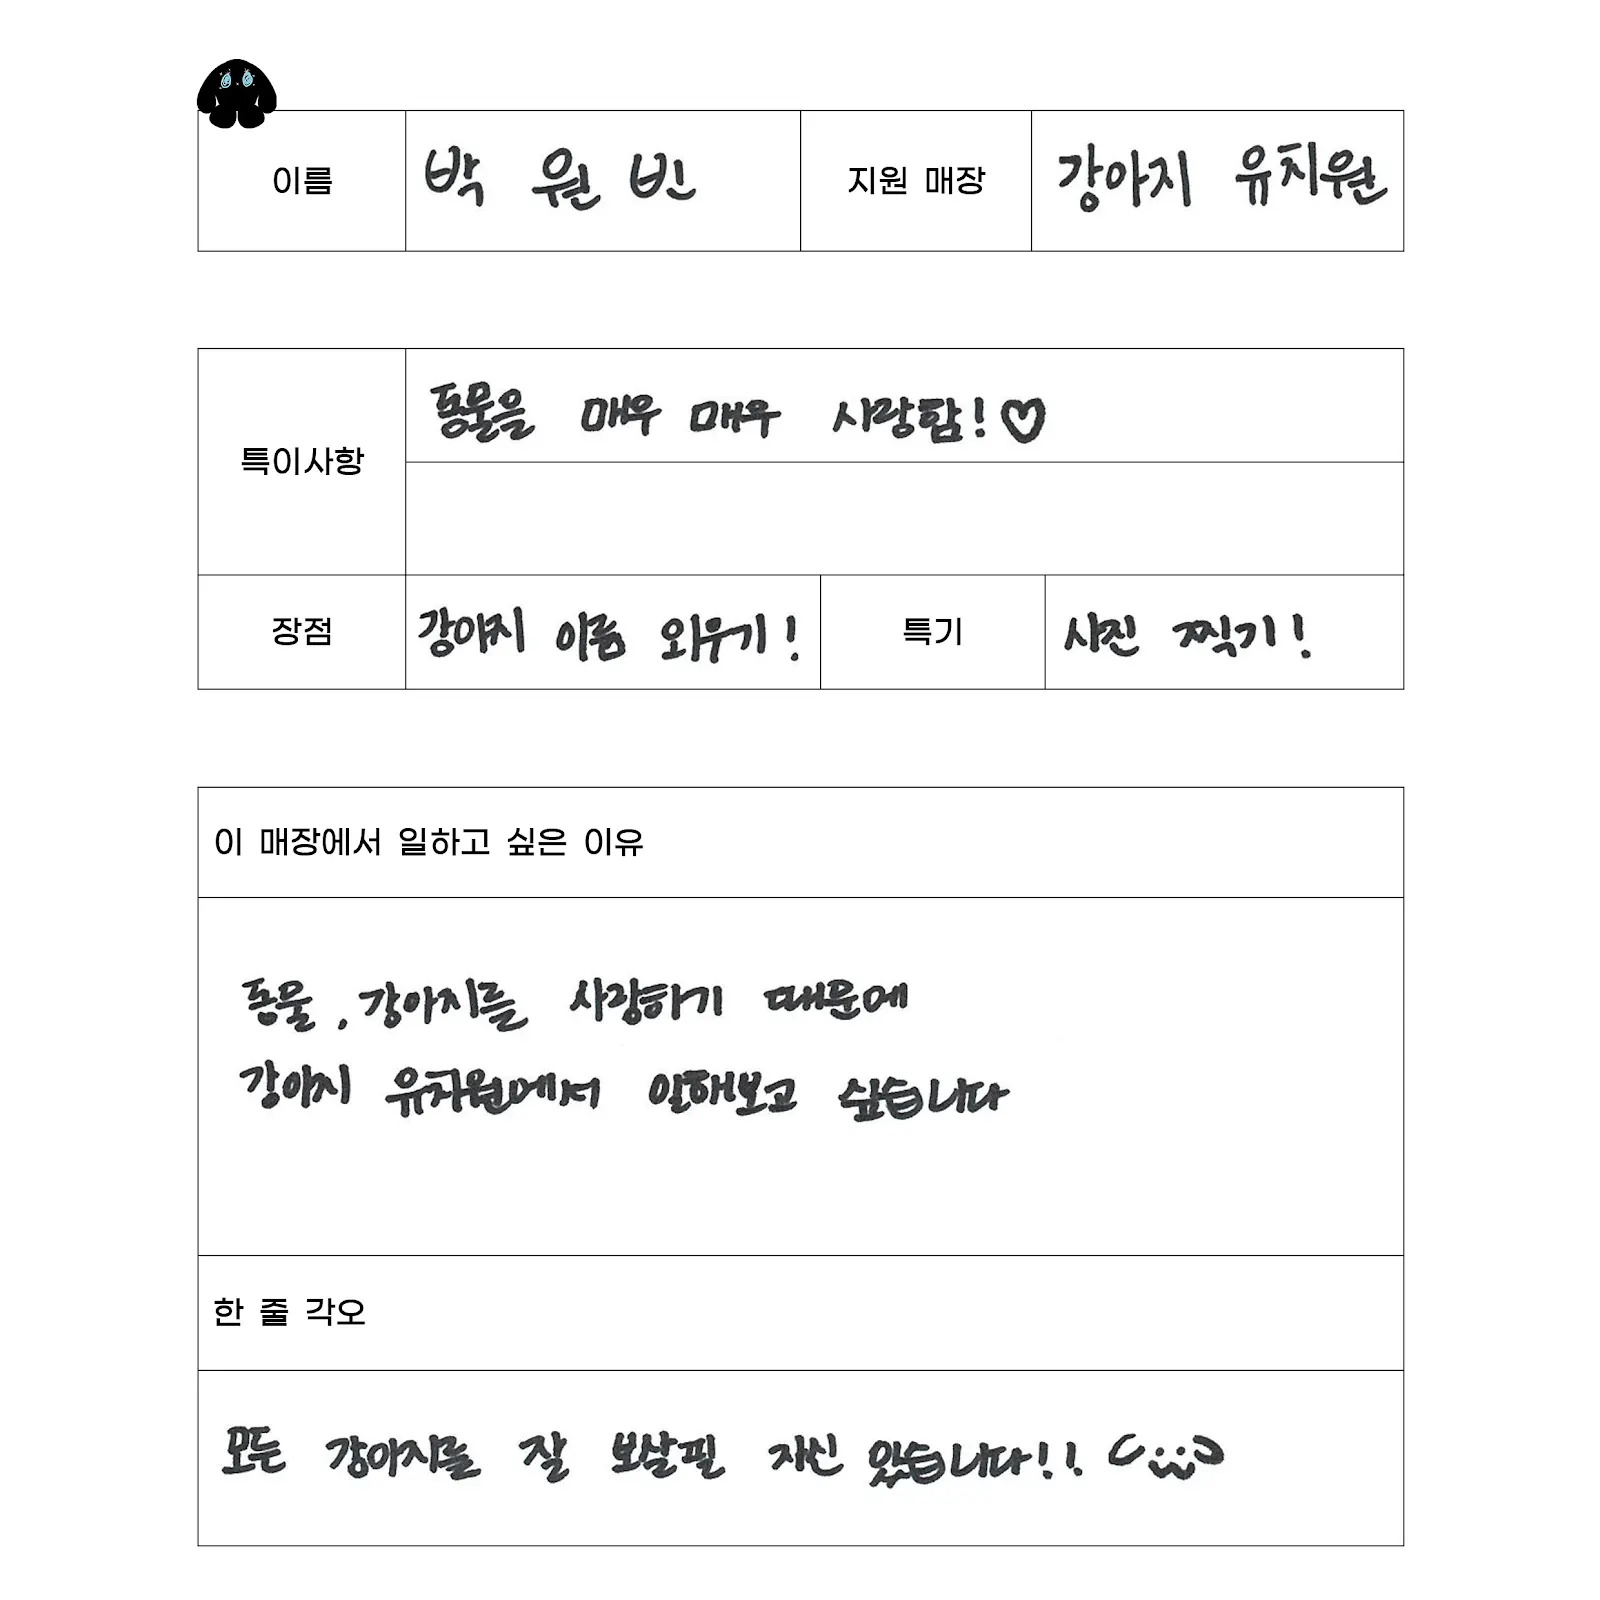 이름 박 원 빈 지원 매장 강아지 유치원
동물을 매우 매우 사랑함!♡
특이사항
장점 강아지 이름 외우기! 특기 사진 찍기!
이 매장에서 일하고 싶은 이유
동물, 강아지를 사랑하기 때문에
강아지 유치원에서 일해보고 싶습니다
한 줄 각오
모든 강아지를 잘 보살필 자신 있습니다!!